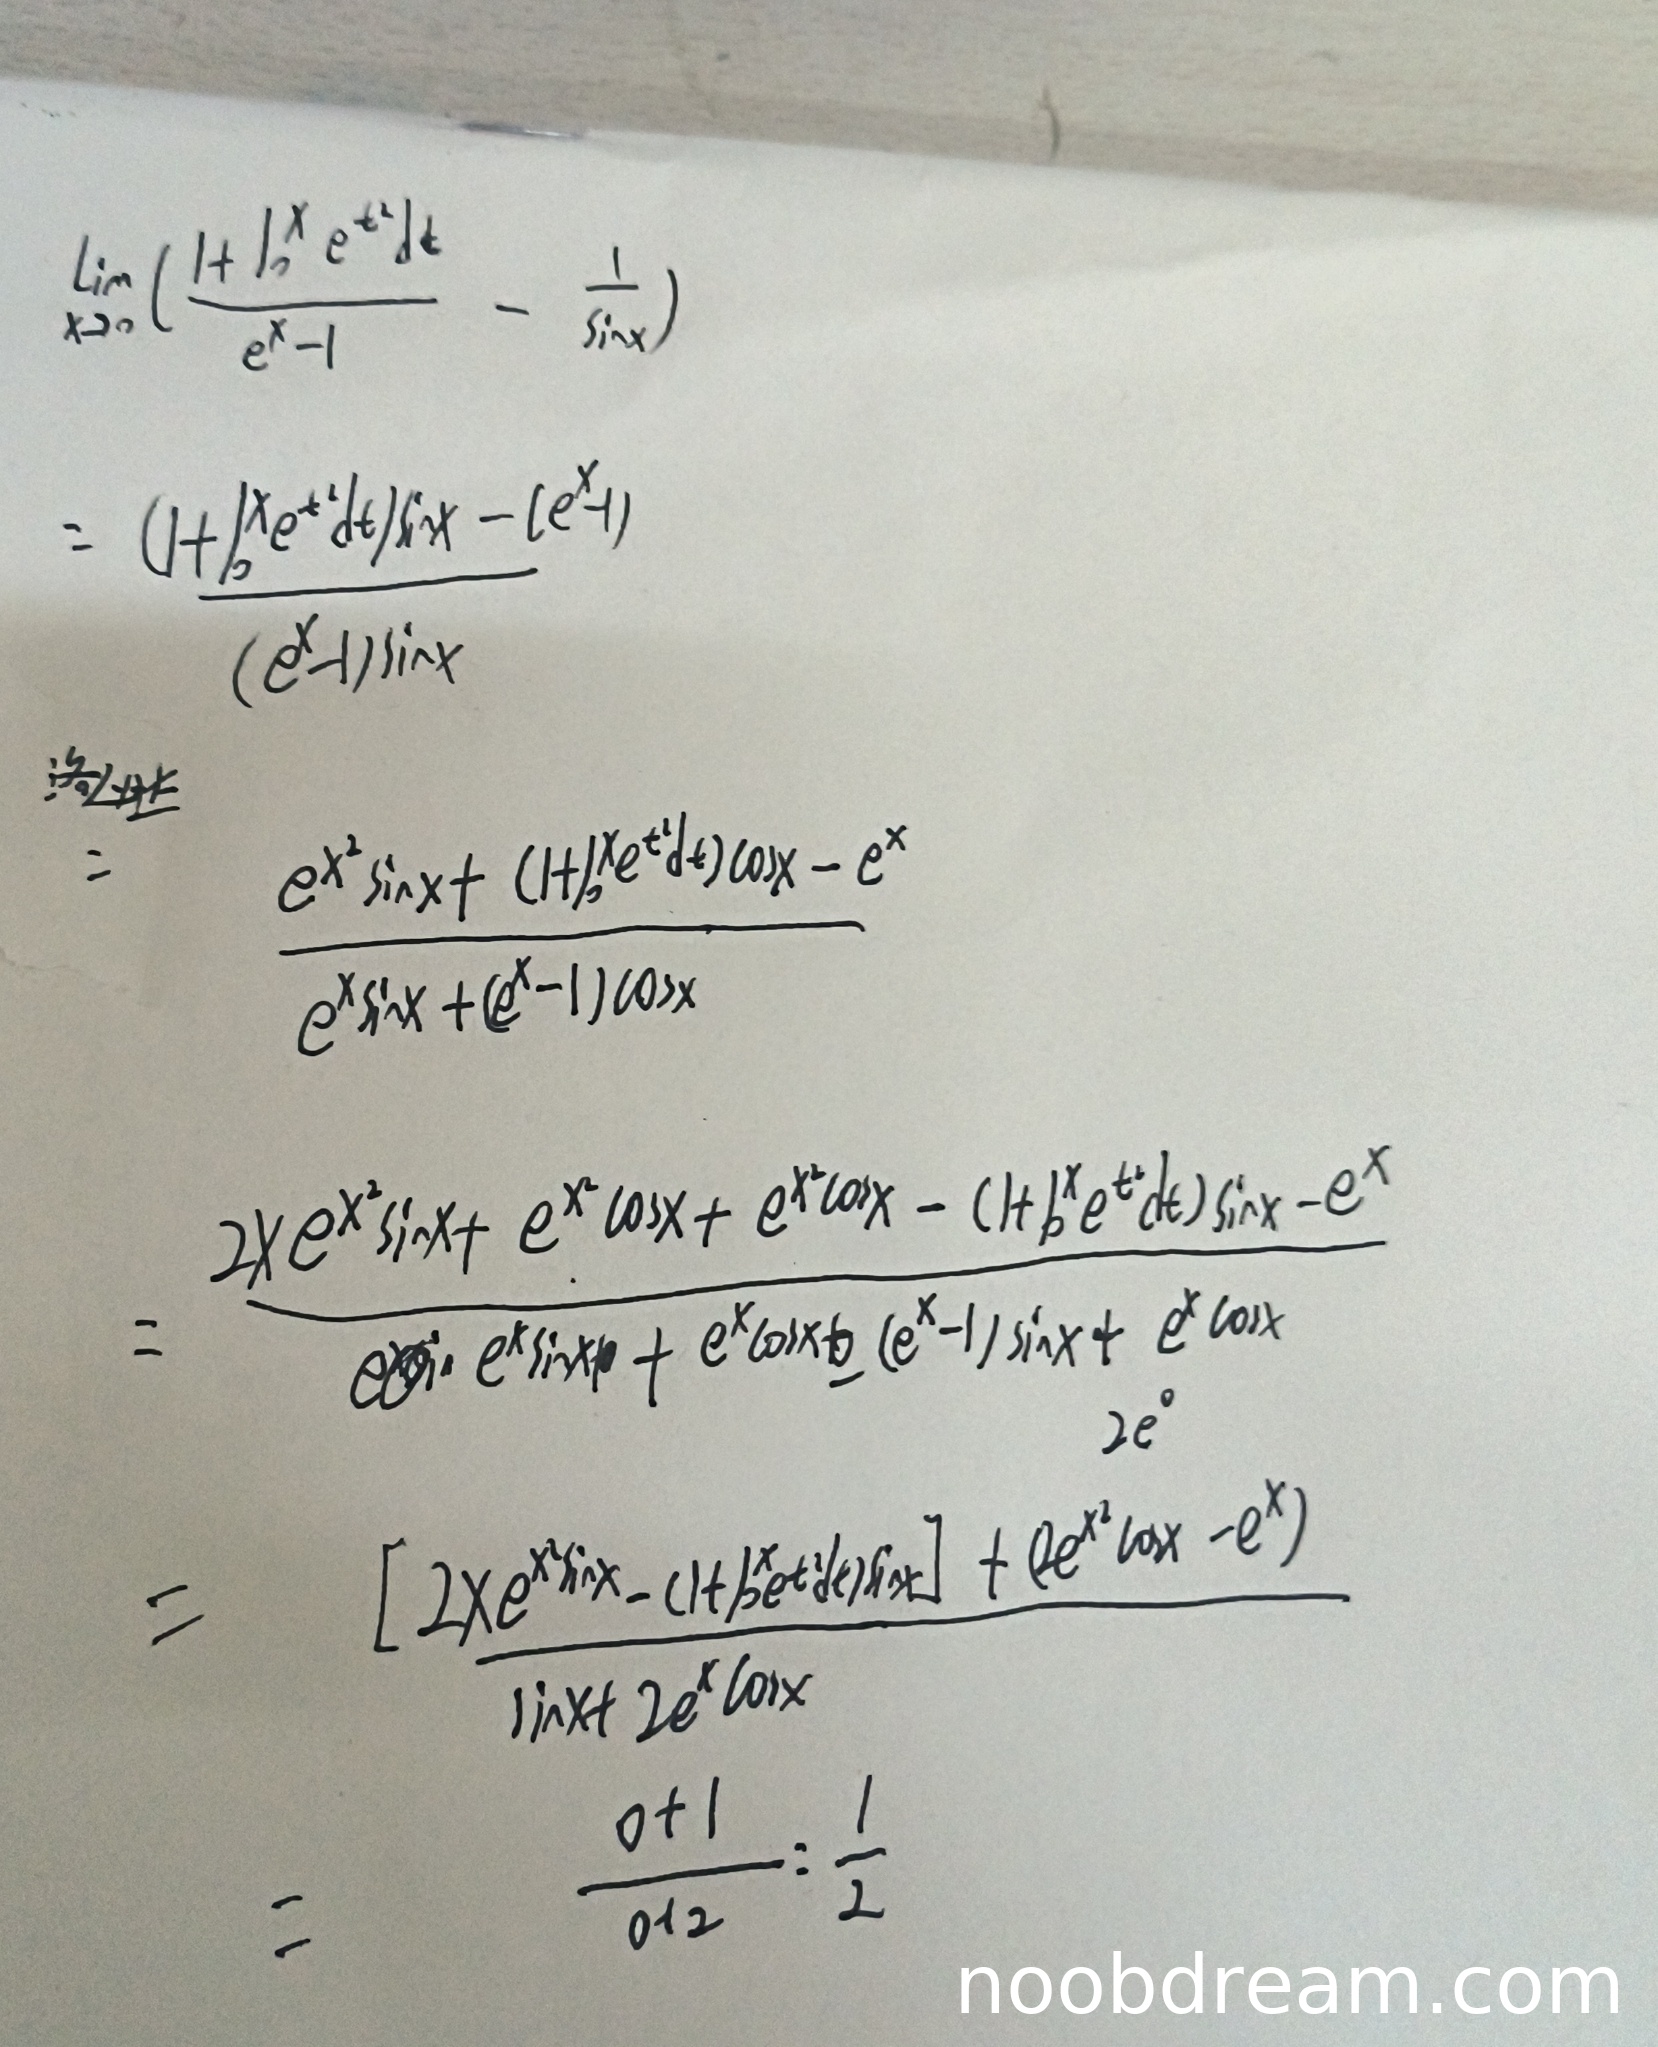 lim x→0 ( (1+∫₀ˣ e^t² dt)/(e^x-1) - 1/sinx )
= ((1+∫₀ˣ e^t² dt)sinx - (e^x-1)) / ((e^x-1)sinx)
洛必达
= (e^x² sinx + (1+∫₀ˣ e^t² dt)cosx - e^x) / (e^x sinx + (e^x-1)cosx)
= (2xe^x² sinx + e^x² cosx + e^x² cosx - (1+∫₀ˣ e^t² dt)sinx - e^x) / (e^x sinx + e^x cosx - (e^x-1)sinx + e^x cosx)
2e⁰
= ([2xe^x² sinx - (1+∫₀ˣ e^t² dt)sinx] + (2e^x² cosx - e^x)) / (sinx + 2e^x cosx)
= (0+1)/(0+2) = 1/2
noobdream.com